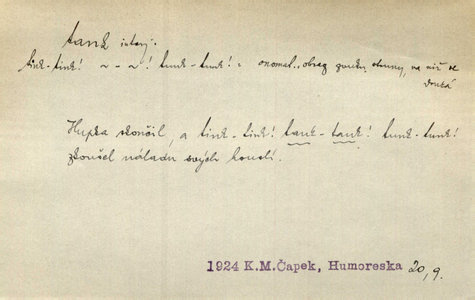 tank interj.
tink-tink! ~ - ~! tunk-tunk! : onomat., obraz zvuku struny, na niž se
brnká
Hupka skončil, a tink-tink! tank-tank! tunk-tunk!
zkoušel náladu svých houslí.
1924 K.M.Čapek, Humoreska 20, 9.